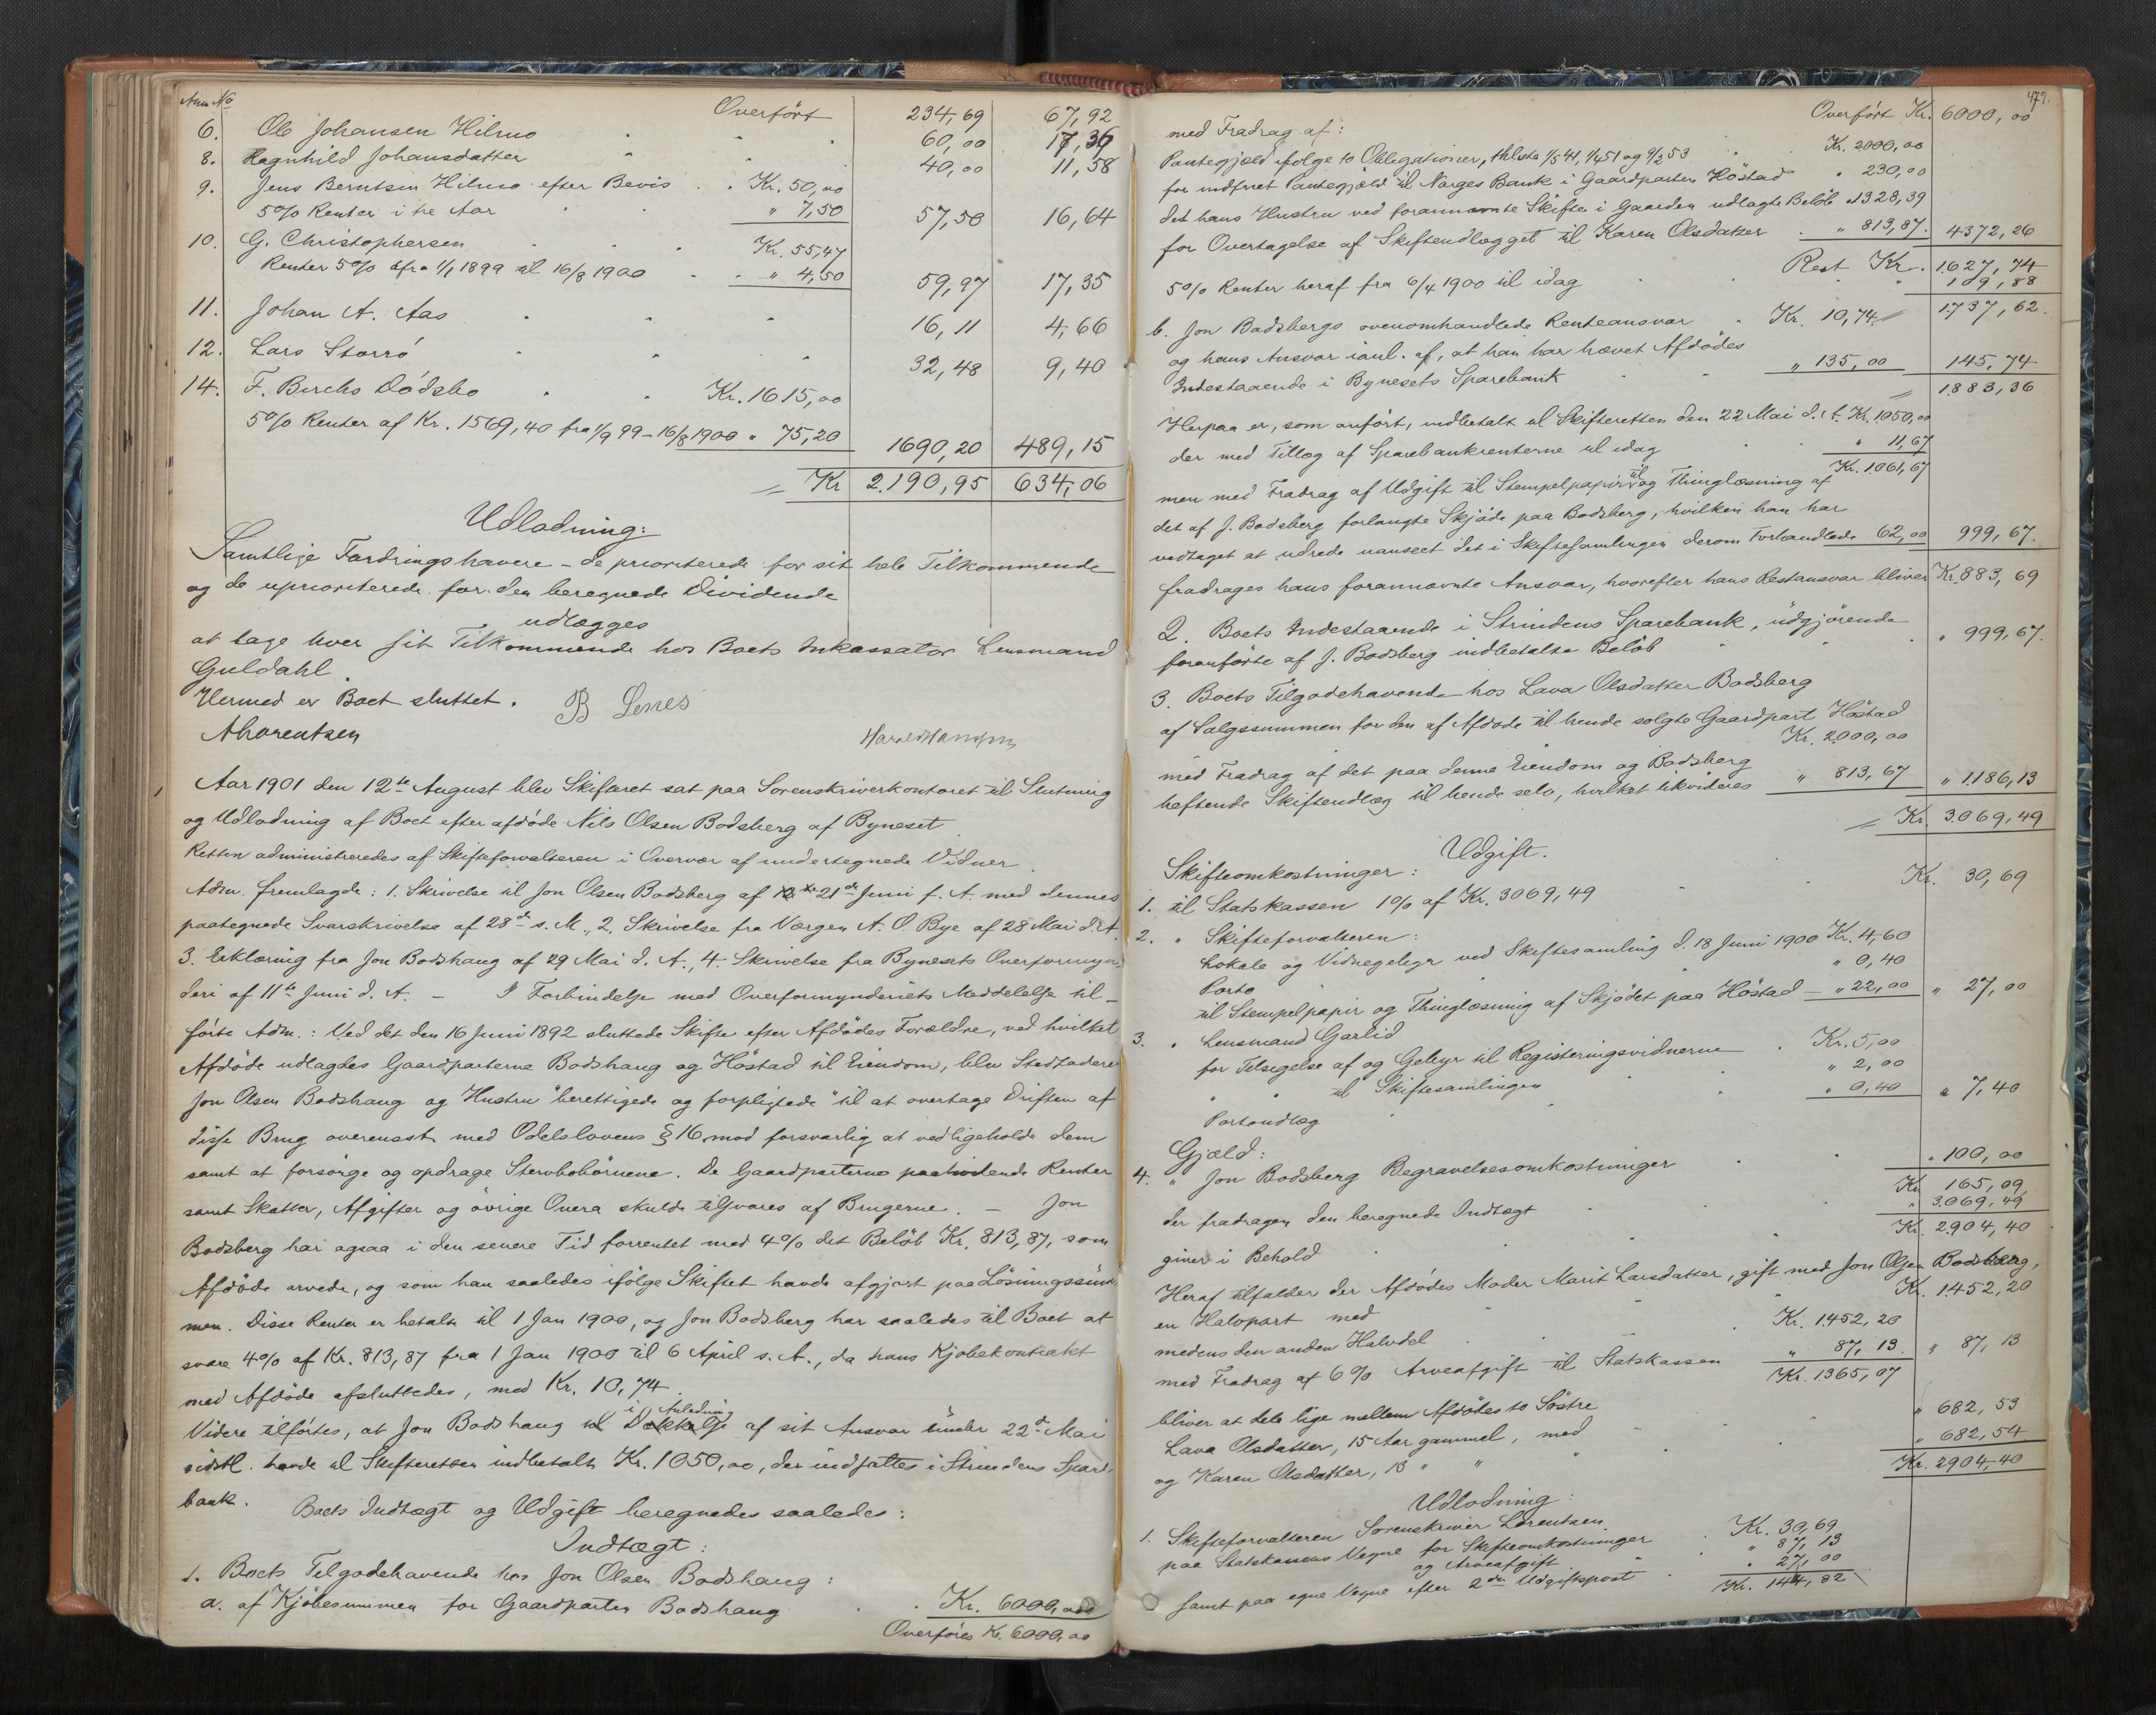 Anm. No
Overført 234,69 67,92
6. Ole Johansen Hilmo 60,00 17,36
8. Ragnhild Johansdatter 40,00 11,58
9. Jens Berntsen Hilmo efter Bevis Kr. 50,00
5% Renter i tre Aar " 7,50 57,50 16,64
10. G. Christophersen Kr. 55,47
Renter 5% fra 1/1 1899 til 16/8 1900 " 4,50 59,97 17,35
11. Johan A. Aas 16,11 4,66
12. Lars Storrø 32,48 9,40
14. F. Birchs Dødsbo Kr. 1615,00
5% Renter af Kr. 1569,40 fra 1/9 99 - 16/8 1900 " 75,20 1690,20 489,15
Kr 2.190,95 634,06
Udlodning:
Samtlige Fordringshavere - de prioriterede for sit hele Tilkommende
og de uprioriterede for den beregnede Dividende
udlægges
at tage hver sit Tilkommende hos Boets Inkassator Lensmand
Guldahl.
Hermed er Boet sluttet.
B Lenes
A Lorentzen
Harald Hansen
Aar 1901 den 12te August blev Skifteret sat paa Sorenskriverkontoret til Slutning
og Udlodning af Boet efter afdøde Nils Olsen Bodsberg af Byneset
Retten administreredes af Skifteforvalteren i Overvær af undertegnede Vidner.
Adm. fremlagde: 1. Skrivelse til Jon Olsen Bodsberg af 21de Juni f. A. med dennes
paategnede Svarskrivelse af 28de s. M., 2. Skrivelse fra Værgen A. O. Bye af 28 Mai d. A.
3. Erklæring fra Jon Bodshaug af 29 Mai d. A., 4. Skrivelse fra Bynesets Overformyn-
deri af 11te Juni d. A. - I Forbindelse med Overformynderiets Meddelelse til-
førte Adm.: Ved det den 16 Juni 1892 sluttede Skifte efter Afdødes Forældre, ved hvilket
Afdøde udlagdes Gaardparterne Bodshaug og Høstad til Eiendom, blev Stedfader
Jon Olsen Bodshaug og Hustru "berettigede og forpligtede" til at overtage Driften af
disse Brug overensst. med Odelslovens § 16 mod forsvarlig at vedligeholde dem
samt at forsørge og opdrage Stervbobørnene. De Gaardparterne paahvilende Renter
samt Skatter, Afgifter og øvrige Onera skulde tilsvares af Brugerne. - Jon
Bodsberg har ogsaa i den senere Tid forrentet med 4% det Beløb Kr. 813,87, som
Afdøde arvede, og som han saaledes ifølge Skiftet havde afgjort paa Løsningssum-
men. Disse Renter er betalt til 1 Jan 1900, og Jon Bodsberg har saaledes til Boet at
svare 4% af Kr. 813,87 fra 1 Jan 1900 til 6 April s. A., da hans Kjøbekontrakt
med Afdøde afsluttedes, med Kr. 10,74.
Videre tilførtes, at Jon Bodshaug i Anledning af sit Ansvar under 22de Mai
sidstl. havde til Skifteretten indbetalt Kr. 1050,00, der indsattes i Strindens Spare-
bank.
Boets Indtægt og Udgift beregnedes saaledes:
Indtægt:
1. Boets Tilgodehavende hos Jon Olsen Bodshaug:
a. af Kjøbesummen for Gaardparten Bodshaug Kr. 6000,00
Overføres Kr. 6000,00
479.
Overført Kr. 6000,00
med Fradrag af:
Pantegjæld ifølge to Obligationer, thlste 1/5 41, 1/4 51 og 9/2 53 Kr. 2000,00
for indfriet Pantegjæld til Norges Bank i Gaardparten Høstad " 230,00
det hans Hustru ved forannævnte Skifte i Gaarden udlagte Beløb " 1328,39
for Overtagelse af Skifteudlægget til Karen Olsdatter " 813,87. 4372,26
Rest Kr. 1627,74
5% Renter heraf fra 6/4 1900 til idag " 109,88
1737,62.
b. Jon Bodsbergs ovenomhandlede Renteansvar Kr. 10,74
og hans Ansvar ianl. af, at han har hævet Afdødes
Indestaaende i Bynesets Sparebank " 135,00 145,74
1883,36
Herpaa er, som anført, indbetalt til Skifteretten den 22 Mai d. A. Kr. 1050,00
der med Tillæg af Sparebankrenterne til idag " 11,67
Kr. 1061,67
men med Fradrag af Udgift til Stempelpapir til og Thinglæsning af
det af J. Bodsberg forlangte Skjøde paa Bodsberg, hvilken han har
vedtaget at udrede uanseet det i Skiftesamlingen derom Forhandlede 62,00 999,67.
fradrages hans forannævnte Ansvar, hvorefter hans Restansvar bliver Kr. 883,69
2. Boets Indestaaende i Strindens Sparebank, udgjørende
foranførte af J. Bodsberg indbetalte Beløb " 999,67.
3. Boets Tilgodehavende hos Lava Olsdatter Bodsberg
af Salgssummen for den af Afdøde til hende solgte Gaardpart Høstad
Kr. 2000,00
med Fradrag af det paa denne Eiendom og Bodsberg
heftende Skifteudlæg til hende selv, hvilket likvideres " 813,67 " 1186,13
Kr. 3069,49
Udgift.
Skifteomkostninger:
1. til Statskassen 1% af Kr. 3069,49 Kr. 30,69
2. " Skifteforvalteren:
Lokale og Vidnegebyr ved Skiftesamling d. 18 Juni 1900 Kr. 4,60
Porto " 0,40
til Stempelpapir og Thinglæsning af Skjødet paa Høstad " 22,00 " 27,00
3. " Lensmand Garlid
for Tilsigelse af og Gebyr til Registeringsvidnerne Kr. 5,00
" " til Skiftesamlingen " 2,00
Portoudlæg " 0,40 " 7,40
Gjæld:
4. " Jon Bodsberg Begravelsesomkostninger " 100,00
Kr 165,09
der fradragen den beregnede Indtægt " 3069,49
giver i Behold Kr. 2904,40
Heraf tilfalder der Afdødes Moder Marit Larsdatter, gift med Jon Olsen Bodsberg,
en Halvpart med Kr. 1452,20
medens den anden Halvdel Kr. 1452,20
med Fradrag af 6% Arveafgift til Statskassen " 87,13. " 87,13
Kr. 1365,07
bliver at dele lige mellem Afdødes to Søstre
Lava Olsdatter, 15 Aar gammel, med " 682,53
og Karen Olsdatter, 13 " " " " 682,54
Kr. 2904,40
Udlodning:
1. Skifteforvalteren Sorenskriver Lorentzen
paa Statskassens Vegne for Skifteomkostninger Kr. 30,69
og Arveafgift " 87,13
samt paa egne Vegne efter 2den Udgiftspost " 27,00
Kr. 144,82